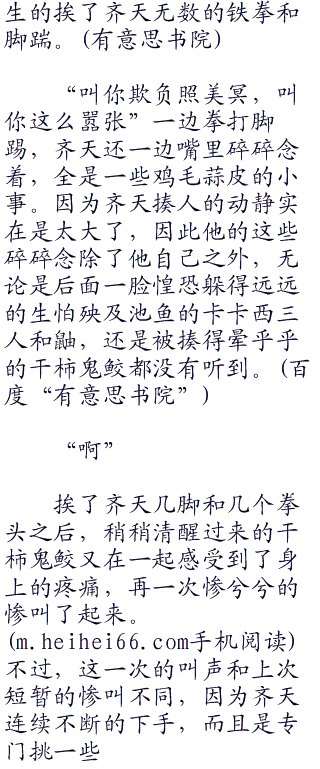 生的挨了齐天无数的铁拳和
脚踹。(有意思书院)
“叫你欺负照美冥，叫
你这么嚣张”一边拳打脚
踢，齐天还一边嘴里碎碎念
着，全是一些鸡毛蒜皮的小
事。因为齐天揍人的动静实
在是太大了，因此他的这些
碎碎念除了他自己之外，无
论是后面一脸惶恐躲得远远
的生怕殃及池鱼的卡卡西三
人和鼬，还是被揍得晕乎乎
的干柿鬼鲛都没有听到。(百
度“有意思书院”)
“啊”
挨了齐天几脚和几个拳
头之后，稍稍清醒过来的干
柿鬼鲛又在一起感受到了身
上的疼痛，再一次惨兮兮的
惨叫了起来。
(m.heihei66.com手机阅读)
不过，这一次的叫声和上次
短暂的惨叫不同，因为齐天
连续不断的下手，而且是专
门挑一些